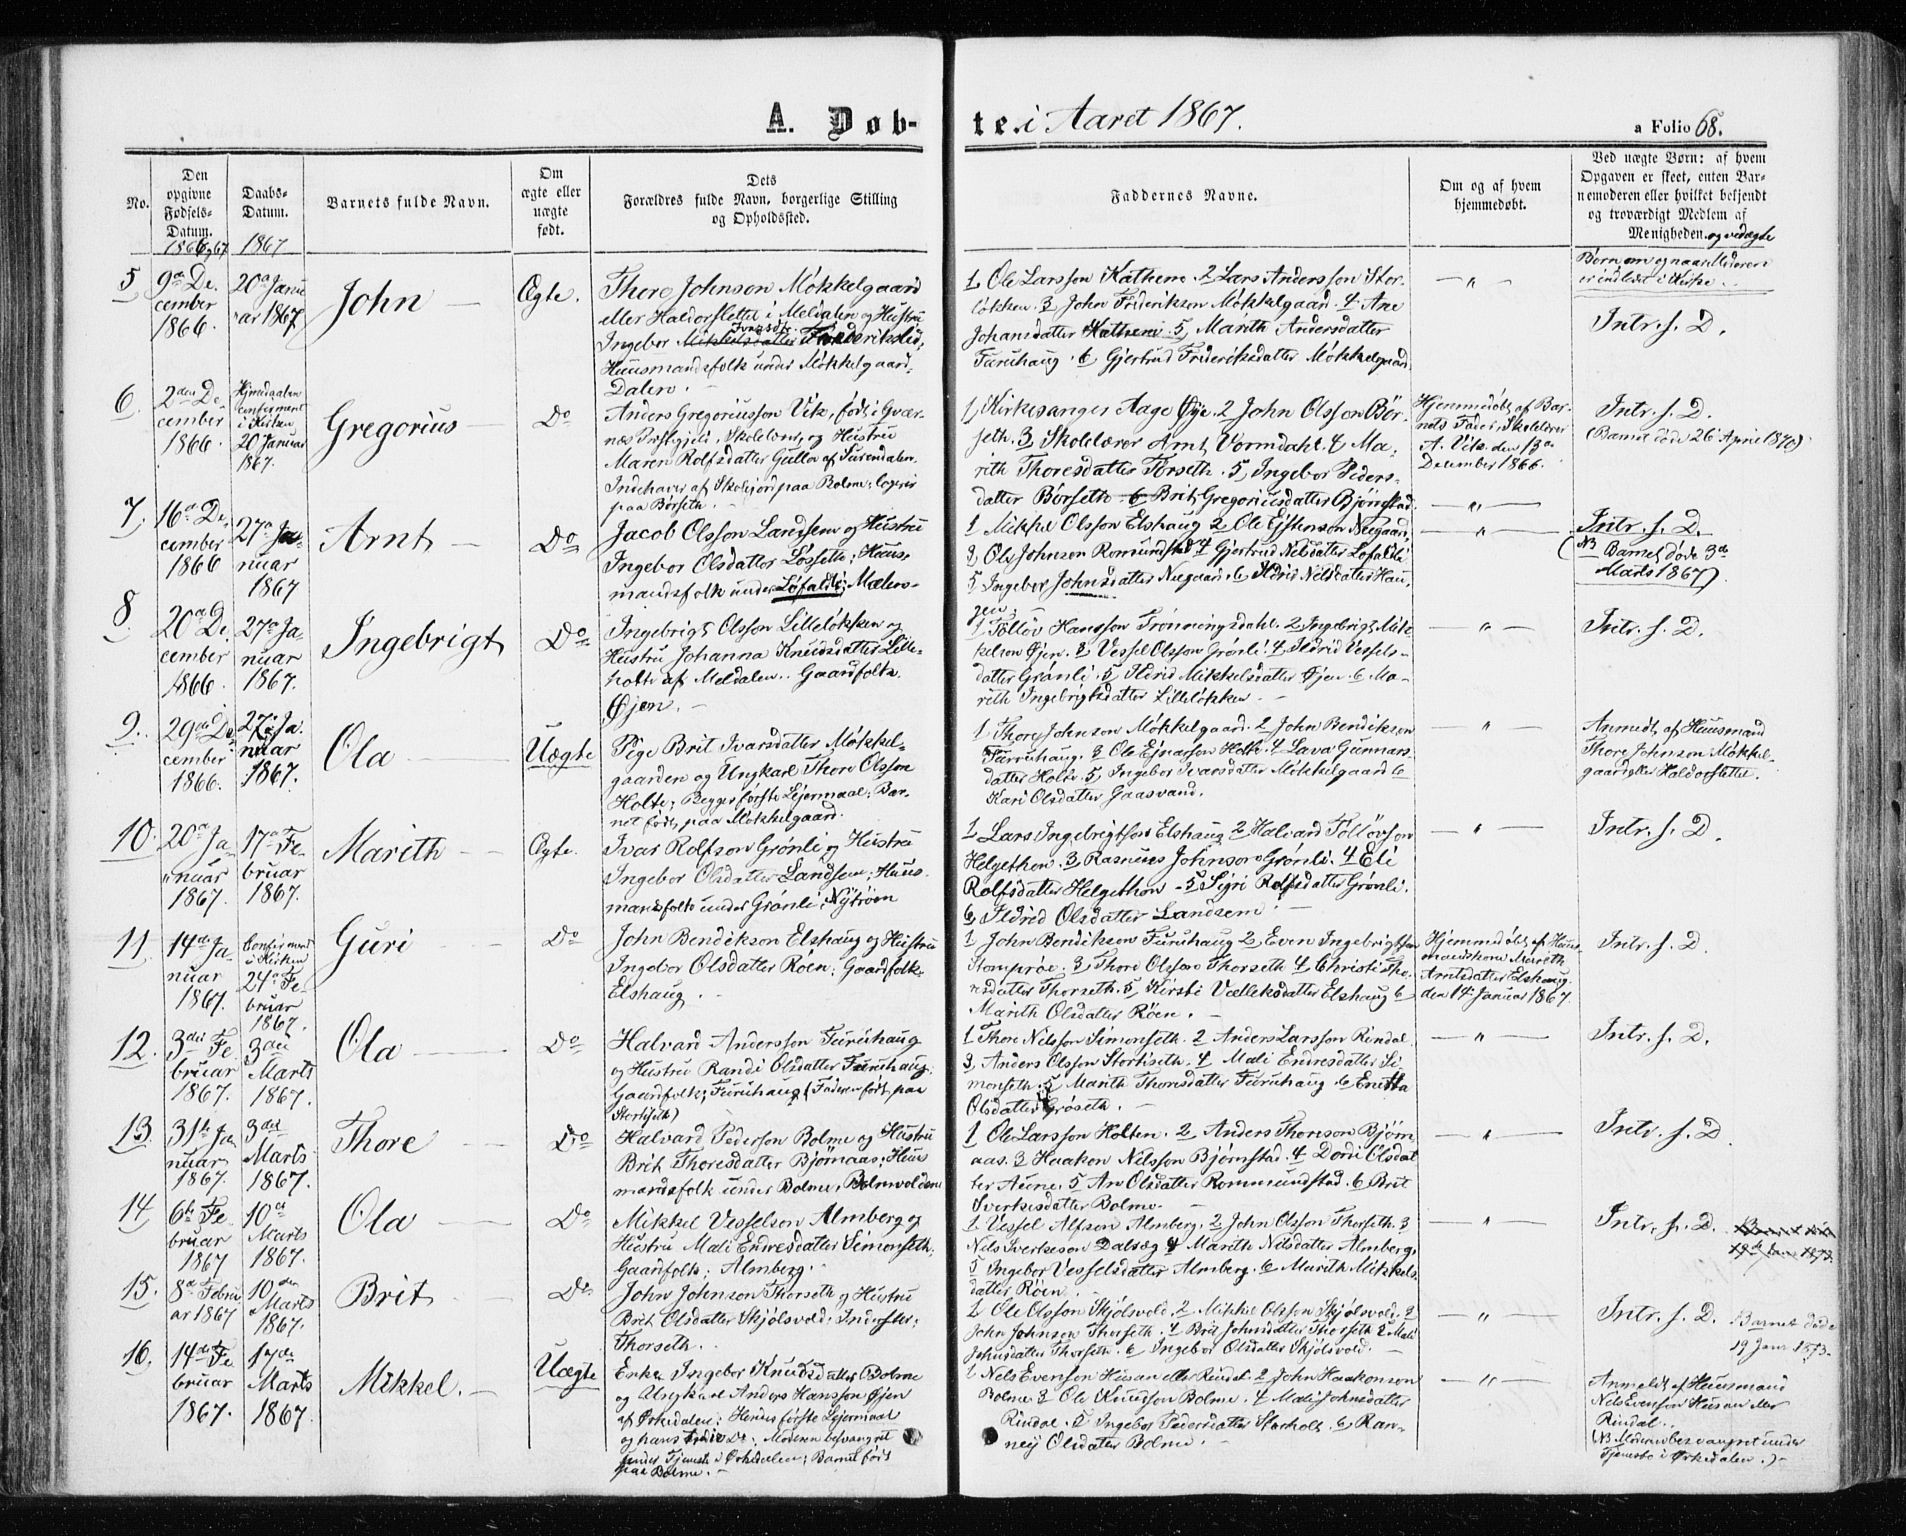 A. Døb-
te i Aaret 1867.
a Folio 68.
No.
Den
opgivne
Fødsels-
Datum.
1866 og 67
Daabs-
Datum.
1867
Barnets fulde Navn.
Om
ægte eller
uægte
født.
Dets
Forældres fulde Navn, borgerlige Stilling
og Opholdssted.
Faddernes Navne.
Om og af hvem
hjemmedøbt.
Ved uægte Børn: af hvem
Opgaven er skeet, enten Bar-
nemoderen eller hvilket bekjendt
og troværdigt Medlem af
Menigheden. og ved ægte
Børn om og naar Moderen
er indledt i Kirke.
5
9de De-
cember
1866
20de Janu
ar 1867
John
Ægte.
Thore Johnson Møkkelgaard
eller Haldorslettet i Meldalen og Hustru
Ingebor Ivarsdtr.
Huusmandsfolk under Møkkelgaard,
Dalen.
1 Ole Larsson Kathene 2 Lars Andersson Stor-
løkken. 3 John Frideriksen Møkkelgaard. 4 Ane
Johansdatter Kathene 5, Marith Andersdatter
Furuhaug. 6 Gjertrud Frideriksdatter Møkkelgaard
— " —
Intr. s. D.
6
2den De
cember
1866
Hjemdøbt
confirmeret
i Kirken
20 Januar
1867.
Gregorius
Do
Anders Gregoriussøn Vik, født i Kvær-
næs Præstgjeld, Skolelærer, og Hustru
Maren Rolfsdatter Gulla af Surendalen.
Indehaver af Skolejord paa Bolme; logerer
paa Børseth.
1, Kirkesanger Aage Øye. 2 John Olsson Bør-
seth. 3 Skolelærer Arnt Vormdahl. 4 Ma-
rith Thoresdatter Torseth. 5, Ingebor Peders-
datter Børseth 6 Brit Gregoriusdatter Bjørnstad.
Hjemmedøbt af Bar-
nets Fader, Skolelærer
A. Vik. den 13de
December 1866.
Intr. s. D.
(Barnet døde 26 April 1870)
7
16de De,
cember
1866
27de Ja-
nuar
1867
Arnt
Do
Jacob Olsson Landsem og Hustru
Ingebor Olsdatter Løssette; Huus-
mandsfolk under Løfaldli; Mælen-
1 Mikkel Olsson Elshaug 2 Ole Ejstenson Nergaard,
3, Ole Johnson Romundstad 4 Gjertrud Nelsdatter Løfaldli
5 Ingebor Johnsdatter Nergaard. 6 Ildrid Nelsdatter Hau,
gen.
— " —
Intr. s. D.
(NB Barnet døde 3de
Marts 1867).
8
20de De,
cember
1866.
27de Ja-
nuar
1867.
Ingebrigt
Do
Ingebrigt Olsson Lilleløkken og
Hustru Johanna Knudsdatter Lille-
holte af Meldalen. Gaardfolk.
Øjen.
1 Følløv Hansson Trønningsdahl. 2 Ingebrigt Mik-
kelson Øjen. 3 Vessel Olsson Grønli. 4 Ildrid Vessels-
datter Grønli. 5 Ildrid Mikkelsdatter Øjen. 6 Ma-
rith Ingebrigtsdatter Lilleløkken.
— " —
Intr. s. D.
9.
29de De-
cember
1866.
27de Ja.
nuar
1867.
Ola
Uægte
Pige Brit Ivarsdatter Møkkel-
gaarden og Ungkarl Thore Olsson
Holte; Begges første Lejermaal; Bar-
net født paa Møkkelgaard.
1 Thore Johnson Møkkelgaard. 2 John Bendikson
Furruhaug. 3 Ole Ejnarson Holte. 4 Lava Gunnars-
datter Holte. 5, Ingebor Ivarsdatter Møkkelgaard 6
Kari Olsdatter Gaasvand.
— " —
Anmeldt af Huusmand
Thore Johnson Møkkel-
gaard eller Haldorslettet.
10.
20de Ja-
nuar
1867.
17de Fe-
bruar
1867.
Marith
Ægte.
Ivar Rolfson Grønli og Hustru
Ingebor Olsdatter Landsem; Huus-
mandsfolk under Grønli; Nytrøen
1 Lars Ingebrigtson Elshaug 2 Halvard Følløvson
Helgethon. 3 Rasmus Johnson Grønli. 4 Eli
Rolfsdatter Helgethon. 5 Sigri Rolfsdatter Grønli.
6, Ildrid Olsdatter Landsem.
— " —
Intr. s. D.
11.
14de Ja-
nuar
1867.
Confirmeret
i Kirken
24de Fe-
bruar
1867.
Guri
Do
John Bendikson Elshaug og Hustru
Ingebor Olsdatter Røen; Gaardfolk.
Elshaug.
1 John Bendikson Furuhaug 2 Even Ingebrigtson
Stomprøe. 3 Thore Olsson Thorseth 4 Christi Tho-
resdatter Thorseth. 5, Kirsti Vælleksdatter Elshaug 6
Marith Olsdatter Røen.
Hjemmedøbt af Huus-
mandskone Marith
Arntsdatter Elshaug.
den 14. Januar 1867.
Intr. s. D.
12.
3die Fe-
bruar
1867.
3die
Marts
1867.
Ola
Do
Halvard Andersson Furuhaug
og Hustru Randi Olsdatter Furuhaug.
Gaardfolk; Furuhaug (Faderen født paa
Stortiseth)
1 Thore Nilsson Simonseth. 2 Anders Larsson Rindal.
3, Anders Olsson Stortiseth. 4 Mali Endresdatter Si-
monseth. 5 Marith Thoresdatter Furuhaug. 6 Enitta
Olsdatter Grøseth.
— " —
Intr. s. D.
13.
31te Ja
nuar
1867.
3die
Marts
1867.
Thore
Do
Halvard Pederson Bolme og Hustru
Brit Thoresdatter Bjørnaas; Huus
mandsfolk under Bolme, Bolmvolden
1 Ole Larsson Holten. 2 Anders Thorson Bjørn
aas. 3 Haakon Nilsson Bjørnstad. 4 Dordi Olsdat
ter Aune. 5 An Olsdatter Rommundstad. 6 Brit
Sverkesdatter Bolme.
— " —
Intr. s. D.
14
6te Fe-
bruar
1867
10de
Marts
1867.
Ola
Do
Mikkel Vesselson Almberg og
Hustru Mali Endresdatter Simonseth;
Gaardfolk; Almberg.
1 Vessel Alfson Almberg. 2 John Olsson Thorseth. 3
Nils Sverkeson Dalsæg. 4 Marith Nilsdatter Almberg.
5 Ingebor Vesselsdatter Almberg. 6 Marith Mikkels-
datter Røen.
— " —
Intr. s. D.
15.
8de Febru
ar 1867
10de
Marts
1867.
Brit
Do
John Johnson Thorseth og Hustru
Brit Olsdatter Skjølsvold; Inderster;
Thorseth.
1 Ole Olsson Skjølsvold. 2 Mikkel Olsson Skjølsvold. 3
John Johnson Thorseth. 4 Brit Johnsdatter Thorseth 5 Mali
Johnsdatter Thorseth. 6 Ingebor Olsdatter Skjølsvold.
— " —
Intr. s. D. Barnet døde
19 Janr 1873.
16.
14de Fe
bruar
1867.
17de
Marts
1867.
Mikkel.
Uægte
Enke Ingebor Knudsdatter Bolme
og Ungkarl Anders Hansson Øjen
af Ørkedalen; Hendes første Lejermaal
og hans tredie Do. Moderen besvangret
under Tjeneste i Ørkedalen; Barnet født
paa Bolme.
1 Nels Evenson Husan eller Rindal 2 John Haakonson
Bolme 3 Ole Knudson Bolme. 4 Mali Johnsdatter
Rindal. 5 Ingebor Pedersdatter Storholt. 6 Ran-
ney Olsdatter Bolme.
— " —
Anmeldt af Huusmand
Nels Evenson Husan eller
Rindal.
(NB Moderen besvangret under
Tjeneste i Ørkedalen.)